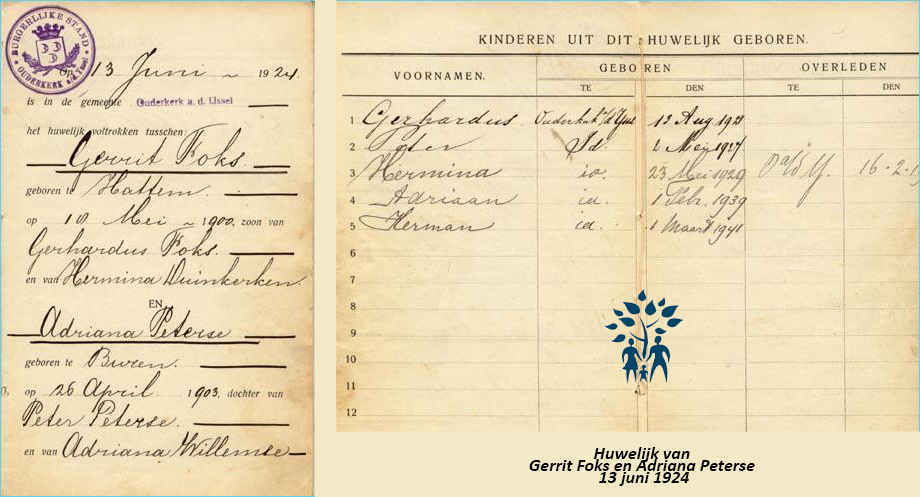 BURGERLIJKE STAND
OUDERKERK a/d IJssel
Op 13 Juni ~ 1924
is in de gemeente Ouderkerk a. d. IJssel
het huwelijk voltrokken tusschen
Gerrit Foks.
geboren te Hattem.
op Mei ~ 1900, zoon van
Gerhardus Foks.
en van Hermina Duinkerken.
EN
Adriana Peterse
geboren te Buren.
op 26 April 1903, dochter van
Peter Peterse.
en van Adriana Willemse
KINDEREN UIT DIT HUWELIJK GEBOREN.
VOORNAMEN. GEBOREN OVERLEDEN
TE DEN TE DEN
1 Gerhardus. Ouderkerk a/d IJssel Aug
2 Peter Id. Mei 1927
3 Hermina io. 23 Mei 1929 16-2-
4 Adriaan id. 1 Febr. 1939
5 Herman id. 1 Maart 1941
6
7
8
9
10
11
12
Huwelijk van
Gerrit Foks en Adriana Peterse
13 juni 1924